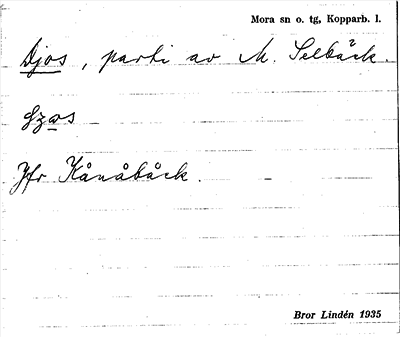 Mora sn o. tg, Kopparb. l.
Djos, parti av M. Selbäck.
Jfr Kånåbäck.
Bror Lindén 1935